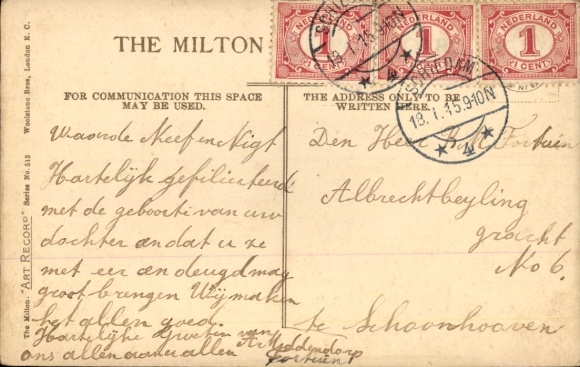 THE MILTON
NEDERLAND
1
1 CENT
NEDERLAND
1
1 CENT
NEDERLAND
1
1 CENT
SCHIEDAM
18.1.15.9-10N
4
FOR COMMUNICATION THIS SPACE
MAY BE USED.
THE ADDRESS ONLY TO BE
WRITTEN HERE.
The Milton "ART RECORD" Series No. 512
Woolstone Bros., London E. C.
Waarde Neef en Nigt
Hartelijk gefiliciteerd
met de geboorte van uw
dochter en dat u ze
met eer en deugd mag
groot brengen Wij maken
het allen goed.
Hartelijke Groeten van
ons allen aan allen
Middendorp
Fortuin
Den Heer Fortuin
Albrechtbeyling
gracht
No 6.
te Schoonhoven